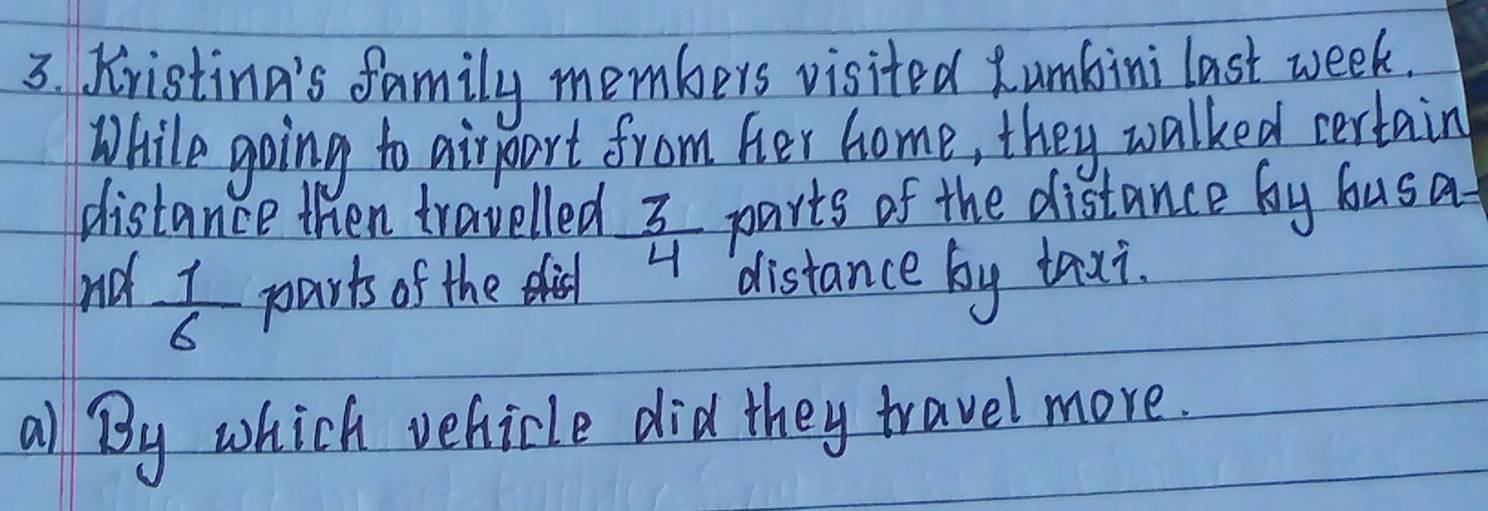 3. Kristina's family members visited Lumbini last week.
While going to airport from her home, they walked certain
distance then travelled 3/4 parts of the distance by bus a-
nd 1/6 parts of the dist distance by taxi.
a) By which vehicle did they travel more.